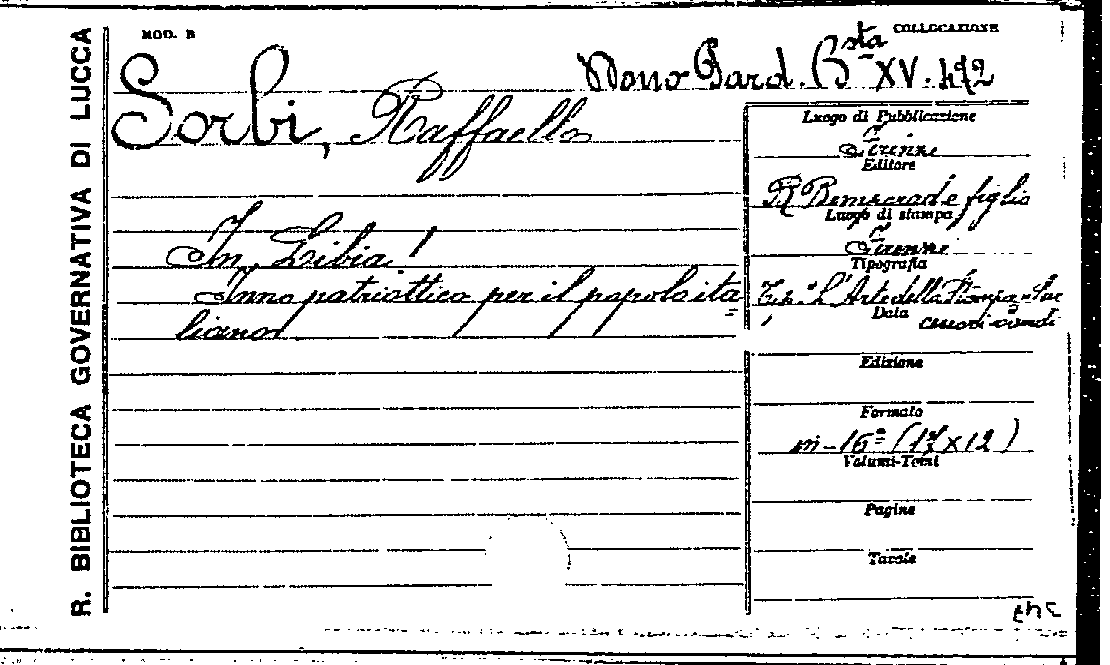 R. BIBLIOTECA GOVERNATIVA DI LUCCA
MOD. B
COLLOCAZIONE
Sorbi, Raffaello
Bsta XV. 472
Luogo di Pubblicazione
Firenze
Editore
R. Bemporad e figlio
Luogo di stampa
Firenze
Tipografia
Tip. "L'Arte della Stampa" Suc
cessori Landi
Data
In Libia!
Inno patriottico per il popolo ita=
liano
Edizione
Formato
in-16º (17x12)
Volumi-Tomi
Pagine
Tavole
347